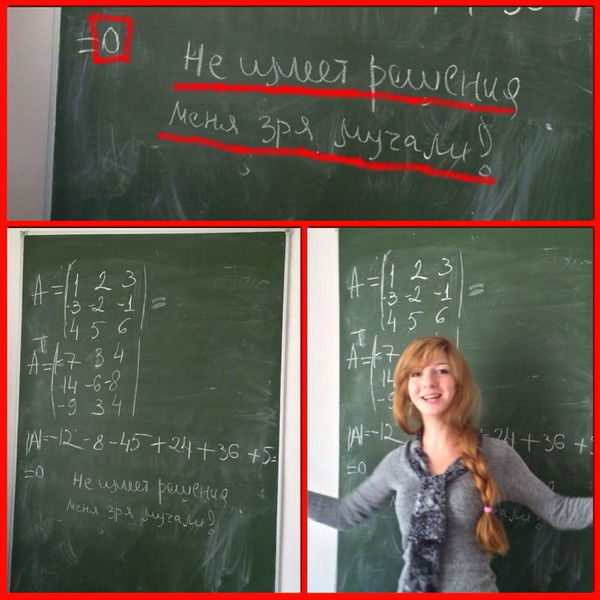 =0
Не имеет решения
меня зря мучали!
A = |1 2 3| =
|-3 -2 -1|
|4 5 6|
Aᵀ = |-7 3 4|
|14 -6 -8|
|-9 3 4|
|A| = -12 - 8 - 45 + 24 + 36 + 5 =
=0
Не имеет решения
меня зря мучали!
A = |1 2 3| =
|-3 -2 -1|
|4 5 6|
Aᵀ = |-7
|14
|A| = -12 24 + 36 +
=0